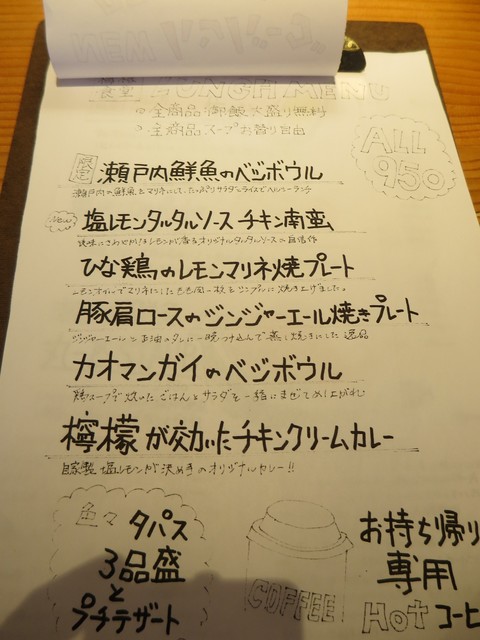 食堂 LUNCH MENU
○ 全商品 御飯大盛り無料
○ 全商品 スープお替り自由
ALL
950
限定 瀬戸内鮮魚のベジボウル
瀬戸内の鮮魚をマリネにして、たっぷりサラダとライスでヘルシーランチ
New 塩レモンタルタルソース チキン南蛮
レモンが香るオリジナルタルタルソースの自信作
ひな鶏のレモンマリネ焼プレート
レモンオイルでマリネにしたもも肉一枚をシンプルに焼き上げました。
豚肩ロースのジンジャーエール焼きプレート
ジンジャーエールとお酒のタレに一晩つけ込んで蒸し焼きにした逸品
カオマンガイのベジボウル
鶏スープで炊いたごはんとサラダを一緒にまぜてめし上がれ
檸檬が効いたチキンクリームカレー
自家製塩レモンが決め手のオリジナルカレー!!
色々 タパス
3品盛
と
プチデザート
COFFEE
お持ち帰り
専用
Hot コーヒ